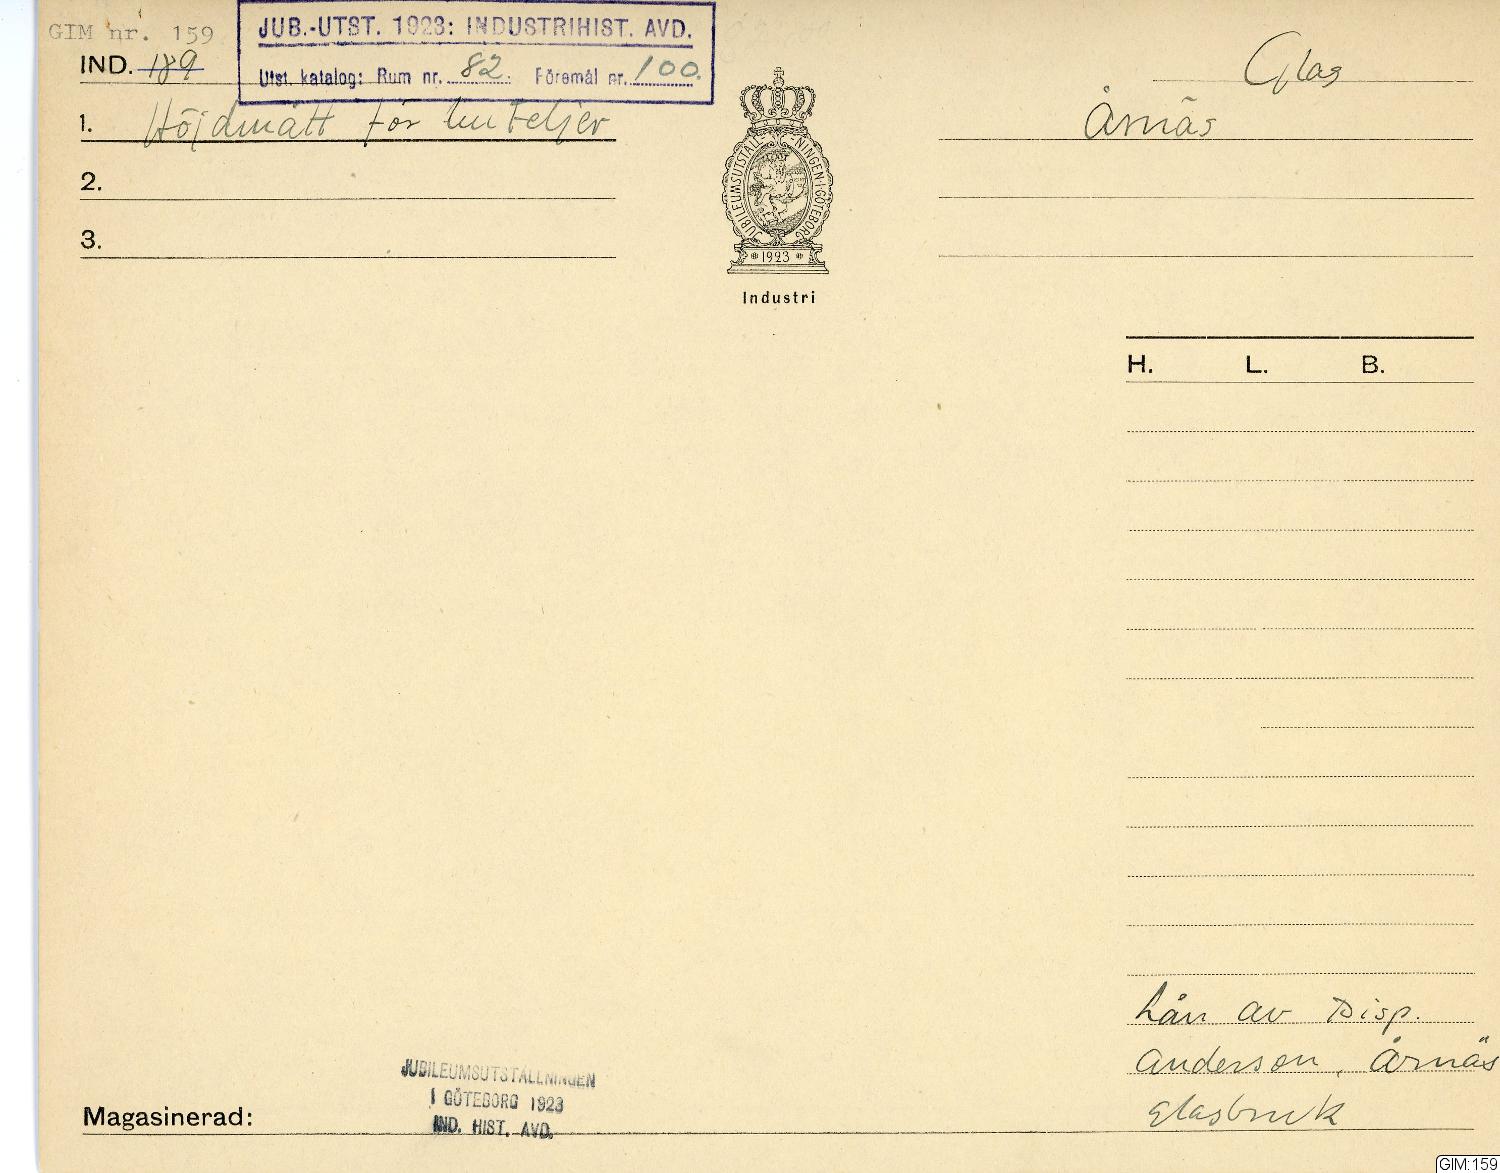 GIM nr. 159
JUB.-UTST. 1923: INDUSTRIHIST. AVD.
IND. 189
Utst. katalog: Rum nr. 82. Föremål nr. 100.
Glas
1. Höjdmått för buteljer
Årnäs
2.
3.
JUBILEUMSUTSTÄLLNINGEN·I·GÖTEBORG
1923
Industri
H. L. B.
Lån av Disp.
Anderson, Årnäs
Glasbruk
JUBILEUMSUTSTÄLLNINGEN
I GÖTEBORG 1923
IND. HIST. AVD.
Magasinerad:
GIM:159